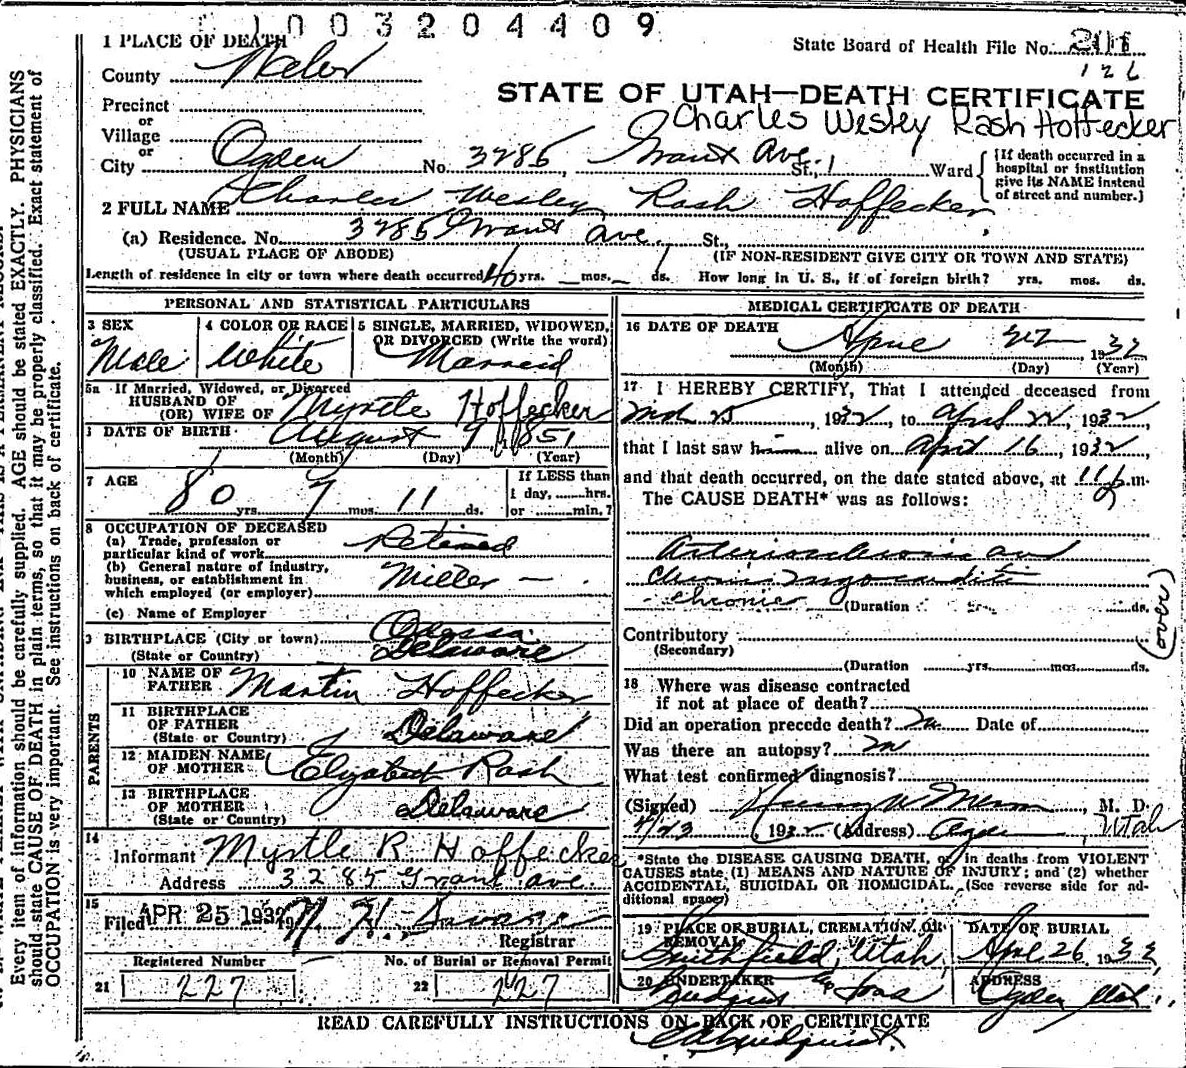 1003204409
1 PLACE OF DEATH
State Board of Health File No. 201
126
County Weber
STATE OF UTAH—DEATH CERTIFICATE
Precinct
or
Charles Wesley Rash Hoffecker
Village
or
City Ogden No. 3285 Grant Ave. St., Ward
{If death occurred in a
hospital or institution
give its NAME instead
of street and number.}
2 FULL NAME Charles Wesley Rash Hoffecker
(a) Residence. No. 3285 Grant Ave. St.,
(USUAL PLACE OF ABODE) (IF NON-RESIDENT GIVE CITY OR TOWN AND STATE)
Length of residence in city or town where death occurred 40 yrs. — mos. — ds. How long in U. S., if of foreign birth? yrs. mos. ds.
PERSONAL AND STATISTICAL PARTICULARS
3 SEX 4 COLOR OR RACE 5 SINGLE, MARRIED, WIDOWED,
OR DIVORCED (Write the word)
Male White Married
5a If Married, Widowed, or Divorced
HUSBAND OF
(OR) WIFE OF Myrtle Hoffecker
DATE OF BIRTH August 9, 1851
(Month) (Day) (Year)
7 AGE If LESS than
1 day, hrs.
80 yrs. 7 mos. 11 ds. or min.?
8 OCCUPATION OF DECEASED
(a) Trade, profession or
particular kind of work Retired
(b) General nature of industry,
business, or establishment in
which employed (or employer) Miller —
(c) Name of Employer
9 BIRTHPLACE (City or town) Odessa
(State or Country) Delaware
PARENTS
10 NAME OF
FATHER Martin Hoffecker
11 BIRTHPLACE
OF FATHER
(State or Country) Delaware
12 MAIDEN NAME
OF MOTHER Elizabeth Rash
13 BIRTHPLACE
OF MOTHER
(State or Country) Delaware
14
Informant Myrtle R Hoffecker
Address 3285 Grant ave.
15
Filed APR 25 1932 Registrar
Registered Number No. of Burial or Removal Permit
21 227 22 227
MEDICAL CERTIFICATE OF DEATH
16 DATE OF DEATH
April 22, 1932
(Month) (Day) (Year)
17 I HEREBY CERTIFY, That I attended deceased from
Mch 25, 1932, to April 22, 1932
that I last saw him alive on April 16, 1932,
and that death occurred, on the date stated above, at 11 p.m.
The CAUSE DEATH* was as follows:
Arteriosclerosis and
chronic myocarditis
chronic (Duration yrs. ds.
(over)
Contributory
(Secondary)
(Duration yrs. mos. ds.
18 Where was disease contracted
if not at place of death?
Did an operation precede death? no Date of
Was there an autopsy? no
What test confirmed diagnosis?
(Signed) M. D.
4/23 1932 (Address) Ogden Utah
*State the DISEASE CAUSING DEATH, or in deaths from VIOLENT
CAUSES state (1) MEANS AND NATURE OF INJURY; and (2) whether
ACCIDENTAL, SUICIDAL OR HOMICIDAL. (See reverse side for ad-
ditional space)
19 PLACE OF BURIAL, CREMATION, OR
REMOVAL DATE OF BURIAL
Smithfield, Utah April 26 1932
20 UNDERTAKER ADDRESS
Lindquist & Sons Ogden Utah
READ CAREFULLY INSTRUCTIONS ON BACK OF CERTIFICATE
Every item of information should be carefully supplied. AGE should be stated EXACTLY. PHYSICIANS
should state CAUSE OF DEATH in plain terms, so that it may be properly classified. Exact statement of
OCCUPATION is very important. See instructions on back of certificate.